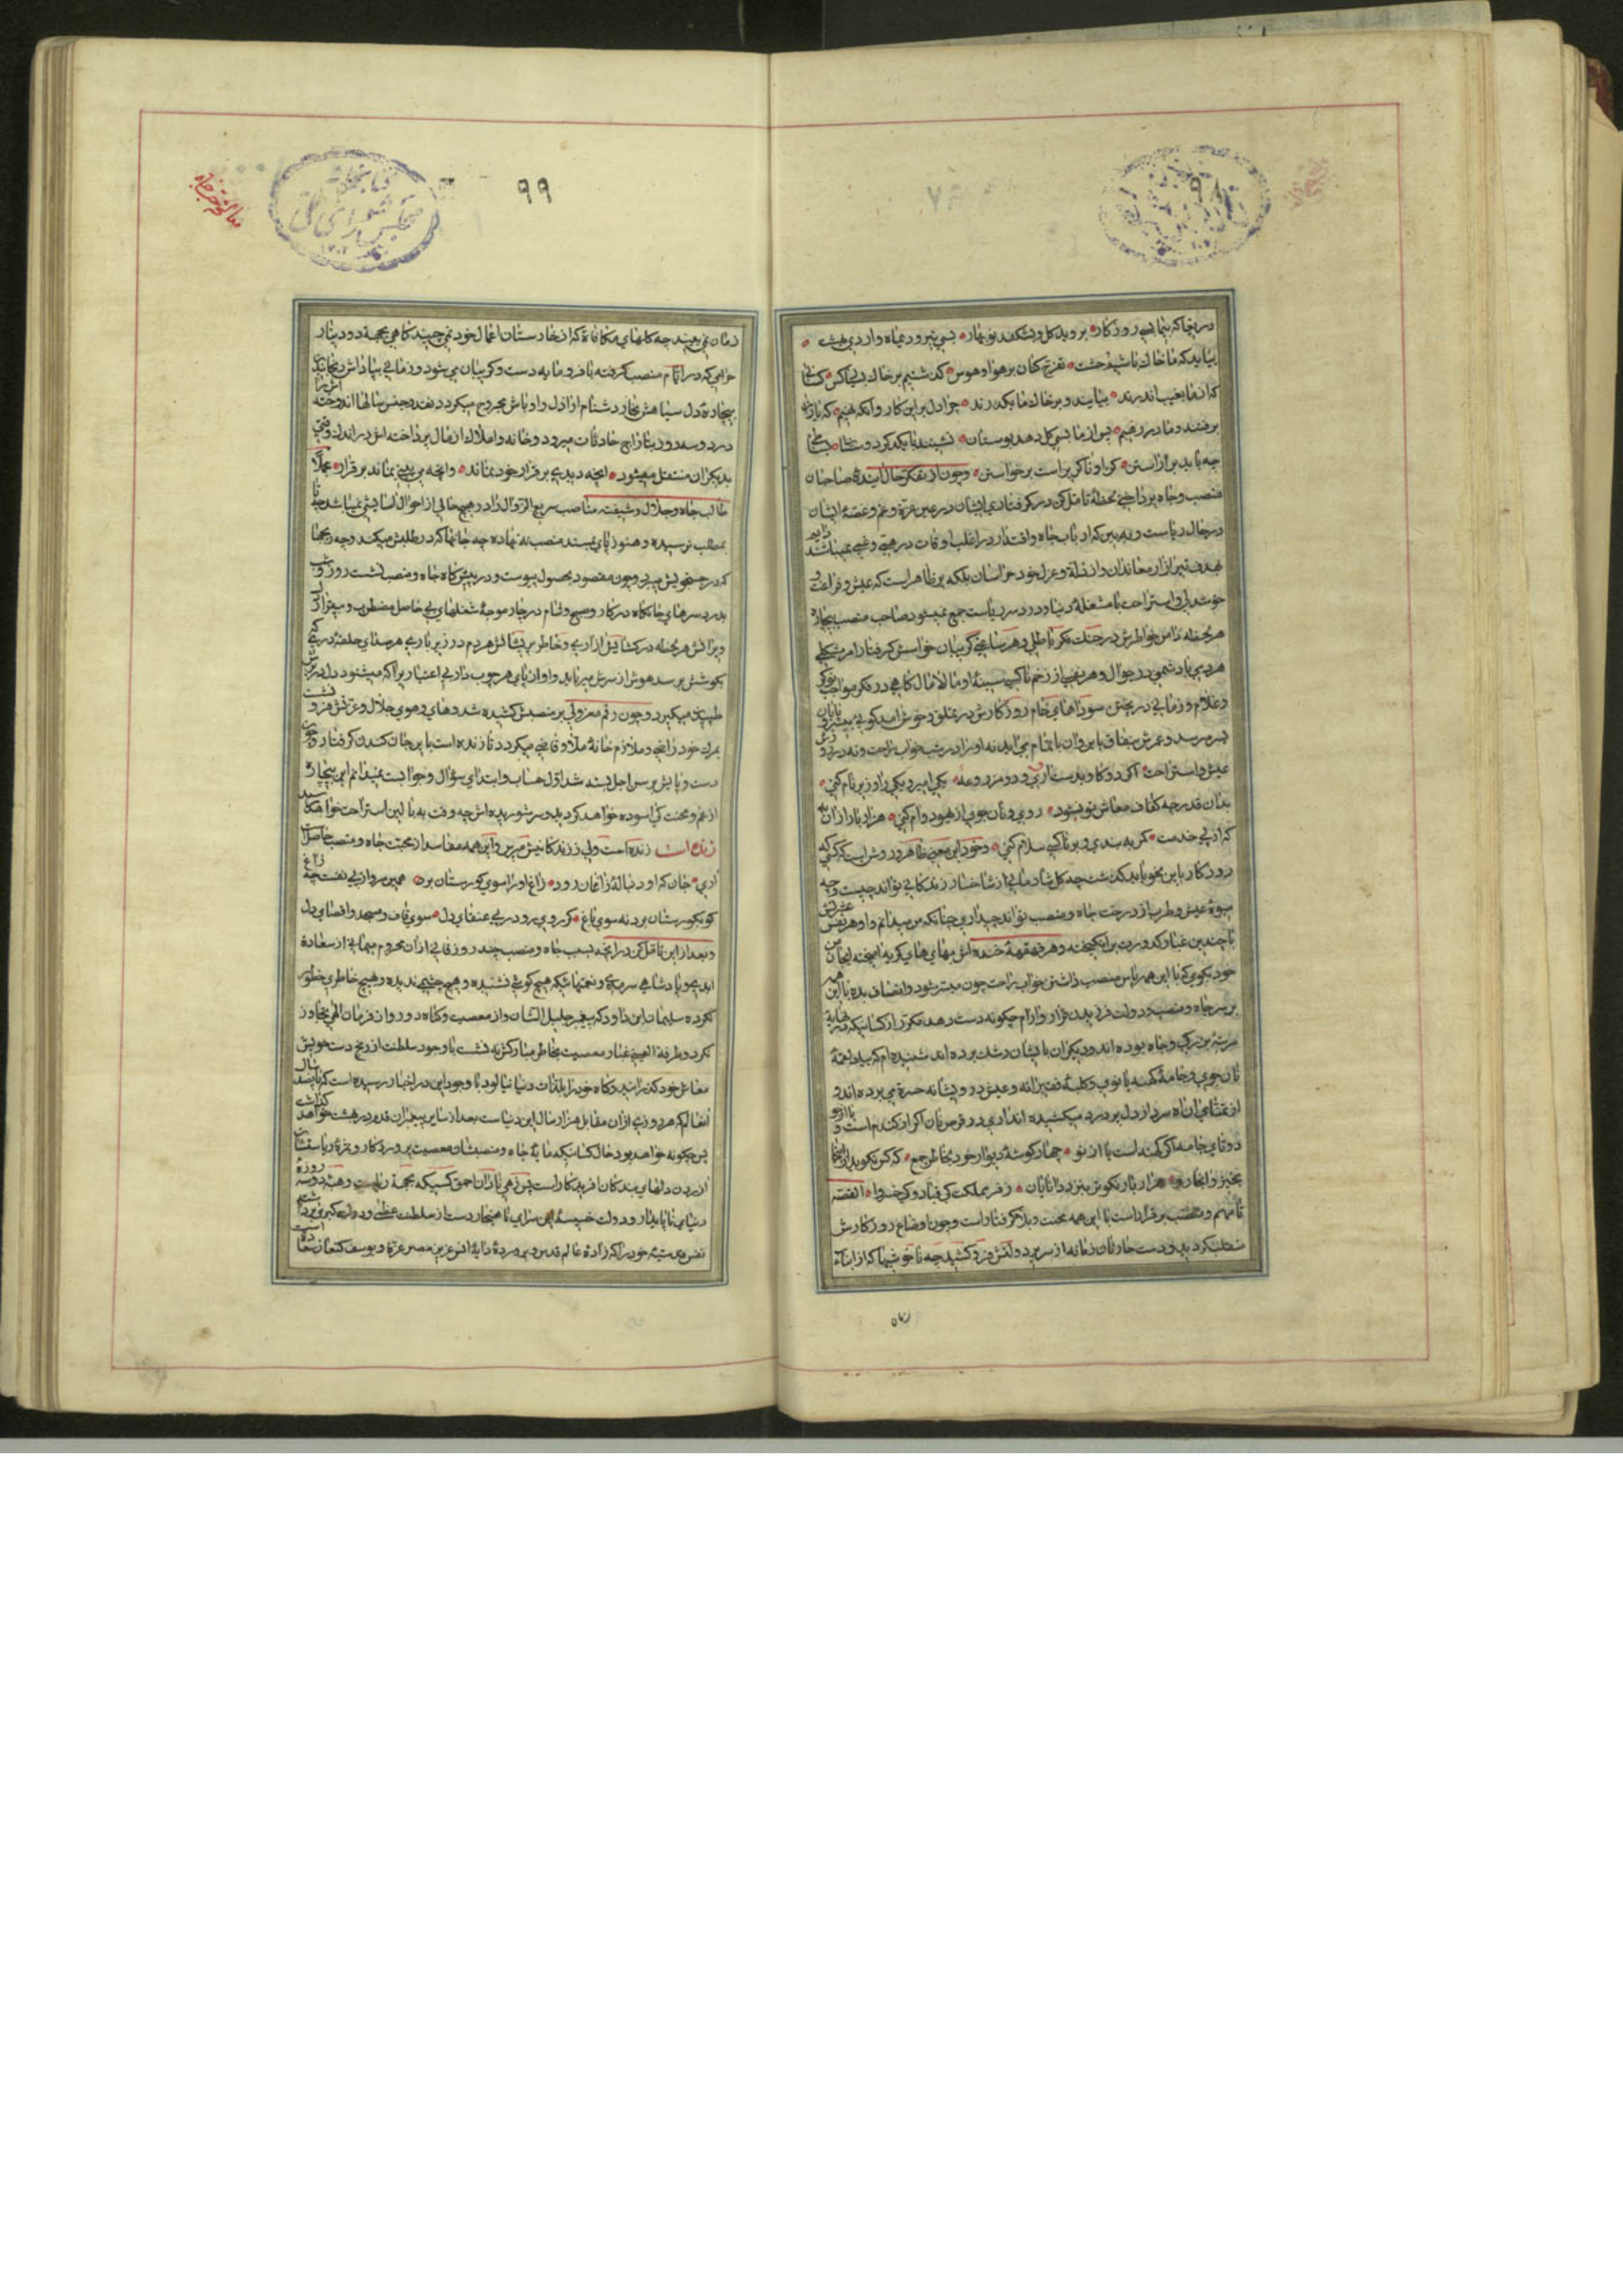 ۹۸
دریغا که بی ما بسی روزگار • بروید گل و بشکفد نوبهار • بسی تیر و دیماه و اردیبهشت •
بیاید که ما خاک باشیم و خشت • تفرج کنان بر هوا و هوس • گذشتیم بر خاک بسیار کس • کسانی
که از ما بغیب اندرند • بیایند و بر خاک ما بگذرند • چرا دل بر این کاروانگه نهیم • که یاران
برفتند و ما در رهیم • پس از ما بسی گل دهد بوستان • نشینند با یکدگر دوستان
چه باید بر آراستن • کز او ناگزیر است برخواستن • و چون از تفکر حال آینده صاحبان
منصب و جاه پرداختی لحظهٔ تامل کن در گرفتاری ایشان در عین عزة و غم و غصهٔ ایشان
در حال ریاست و ببین که ارباب جاه و اقتدار در اغلب اوقات در همی و غمی نمیباشند
هدف تیر آزار معاندان و از ذلة و عزل خود هراسان بلکه بر ظاهر است که عیش و فراغت و
خوشدلی و استراحت با مشغلهٔ دنیا و درد سر ریاست جمع نمیشود صاحب منصب بیچاره
هر لحظه دامن خواطرش در چنگ فکر باطلی و هر ساعتی گریبان حواسش گرفتار امر مشکلی
هر دمی با دشمنی در جوال و هر نفسی از زخم ناکسی سینهٔ او مالامال گاهی در فکر مواجب نوکر
و غلام و زمانی در پختن سوداهای خام روزگارش در تملق و خوش آمدگویی بی سر و پایان
بسر میرسد و عمرش بنفاق با این و آن باتمام می انجامد نه او را در شب خواب راحت و نه در روز
عیش و استراحت • اگر دو گاو بدست آری و دو مزروعه • یکی امیر و یکی را وزیر نام کنی •
بدان قدر چو کفاف معاش تو نشود • روی و نان جوی از یهود وام کنی • هزار بار از آن به
که از پی خدمت • کمر به بندی و بر ناکسی سلام کنی • و خود این معنی ظاهر و روشن است که کسی که
روزگار باین نحو باید گذشت چه گل شادمانی از شاخسار زندگانی تواند چید و چه
میوهٔ عیش و طرب از درخت جاه و منصب تواند چید آری چنانکه من میدانم و او هر نفس عشرتش
با چندین غبار کدورت برانگیخته و هر قهقههٔ خنده اش بهای های گریه آمیخته ای جان من
خود بگوی که با این همه پاس منصب داشتن خواب راحت چون میسر شود و انصاف بده با این همه
بر سر جاه و منصب و دولت فرد بدن قرار و آرام چگونه دست دهد مکرر از کسانیکه در نهایة
مرتبهٔ بزرگی و جاه بوده اند و دیگران بایشان رشک برده اند شنیده ام که بیک لقمهٔ
نان جوی و جامهٔ کهنه یا نوی و کلبهٔ فقیرانه و عیش درویشانه حسرة می برده اند و
از تمنای آن آه سرد از دل پر درد میکشیده اند آری دو قرص نان اگر از گندم است و یا از جو
دو تای جامه اگر کهنه است یا از نو • چهار گوشهٔ دیوار خود بخاطر جمع • که کس نگوید از اینجا
بخیز و آنجا رو • هزار بار نکوتر بنزد دانایان • ز فر مملکت کی قباد و کیخسرو • القصه
تا مهم و منصب برقرار است با این همه محنت و بلا گرفتار است و چون اوضاع روزگارش
منقلب گردید و دست حادثات زمانه از سریر دولتش فرو کشید چه ناخوشیها که از ابناء
زمان
۹۹
زمان نمی بیند چه گلهای مکافاة که از خارستان اعمال خود نمی چیند گاهی بجهة دو دینار
حرامی که در ایام منصب گرفته با فرومایه دست و گریبان می شود و زمانی بپاداش
بیچارهٔ دل سیاهش بخار دشنام اراذل و اوباش مجروح میگردد نقد و جنس سالها اندوخته اش را
در دو سه روز بتاراج حادثات میرود و خانه و املاک از مال پرداخته اش در اندک وقتی
بدیگران منتقل میشود • آنچه دیدی بر قرار خود نماند • و آنچه می بینی نماند بر قرار • مجملاً
طالب جاه و جلال و شیفته مناصب سریع الزوال را در هیچ حالی از احوال آسایشی نمیباشد تا
بمطلب نرسیده و هنوز پای بمسند منصب ننهاده چه جانها که در طلبش میکند و چه رنجها
که در جستجویش میبرد و چون مقصود بحصول پیوست و در پیشگاه جاه و منصب نشست روز و شب
بدرد سرهای جانکاه درکار و صبح و شام در چار موجهٔ شغلهای بی حاصل مضطرب و بیقرار
ویرانش هر لحظه در کشاکش آزاری و خاطر پریشانش هر دم در زیر باری هر صدای حلقهٔ دری که
بگوشش برسد هوش از سرش میرباید و آواز پای هر چوب دار بی اعتبار را که میشنود دل در برش
طپیدن میگیرد و چون رقم معزولی بر منصبش کشیده شد و های و هوی جلال و عزتش فرو نشست
بمرگ خود راضی و ملازم خانهٔ ملا و قاضی میگردد تا زنده است باین جان کندن گرفتار و چون
دست و پایش برسن اجل بسته شد اول حساب و ابتدای سؤال و جواب است نمیدانم این بیچاره
از غم و محنت کی آسوده خواهد گردید و سر شوریده اش چه وقت به بالین استراحت خواهد رسید
زنده است زنده است ولی ز زندگانیش مپرس و این همه مفاسد از محبت جاه و منصب حاصل است
آری • جان که او دنبالهٔ زاغان رود • زاغ او را سوی گورستان برد • همین مرو از پی نفس چو زاغ
کو بگورستان برد نه سوی باغ • گر روی رو در پی عنقای دل • سوی قاف و مسجد و اقصای دل
و بعد از این تامل کن در آنچه بسبب جاه و منصب چند روز فانی از آن محروم میمانی از سعادة
ابدی و پادشاهی سرمدی و نعمتهائیکه هیچ گوشی نشنیده و هیچ چشمی ندیده و هیچ خاطری خطور
نکرده سلیمان ابن داود که پیغمبر جلیل الشان و از معصیت و گناه دور و از فرمان الهی تجاوز
نکرد و طرفة العینی غبار معصیت بخاطر مبارکش نه نشست با وجود سلطنت از رنج دست خویش
معاش خود گذرانید و کام خود را بلذات دنیا نیالود با وجود این در اخبار رسیده است که پانصد سال
آنعالم که هر روزی از آن مقابل هزار سال این دنیاست بعد از سایر پیغمبران قدم در بهشت خواهد گذاشت
پس چگونه خواهد بود حال کسانیکه مایهٔ جاه و منصبشان معصیت پروردگار و ثمرهٔ ریاستشان
آزردن دلهای بندگان آفریدگار است پس زهی نادان احمق کسیکه بجهة ریاست وهمیهٔ دو سه روزهٔ
دنیای ناپایدار و دولت خسیسهٔ این سرای ناهنجار دست از سلطنت عظمی و دولت کبری بردارد
نفس قدسیه خود را که زادهٔ عالم قدس و پروردهٔ دایهٔ انس عزیز مصر عزة و یوسف کنعان
کتابخانه
مجلس شورای ملی